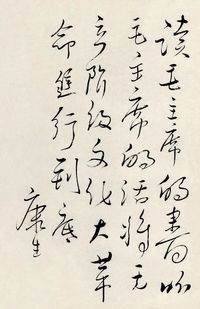 读毛主席的書听
毛主席的话将无
产阶级文化大革
命進行到底
康生